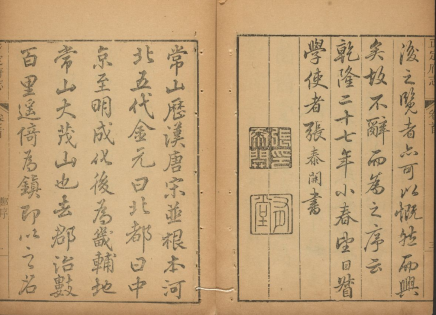 後之覽者亦可以慨然而興
矣故不辭而為之序云
乾隆二十七年小春望日督
學使者張泰開書
張印
泰開
常山歷漢唐宋並根本河
北五代金元曰北都曰中
京至明成化後為畿輔地
常山大茂山也去郡治數
百里遙倚為鎮即以名